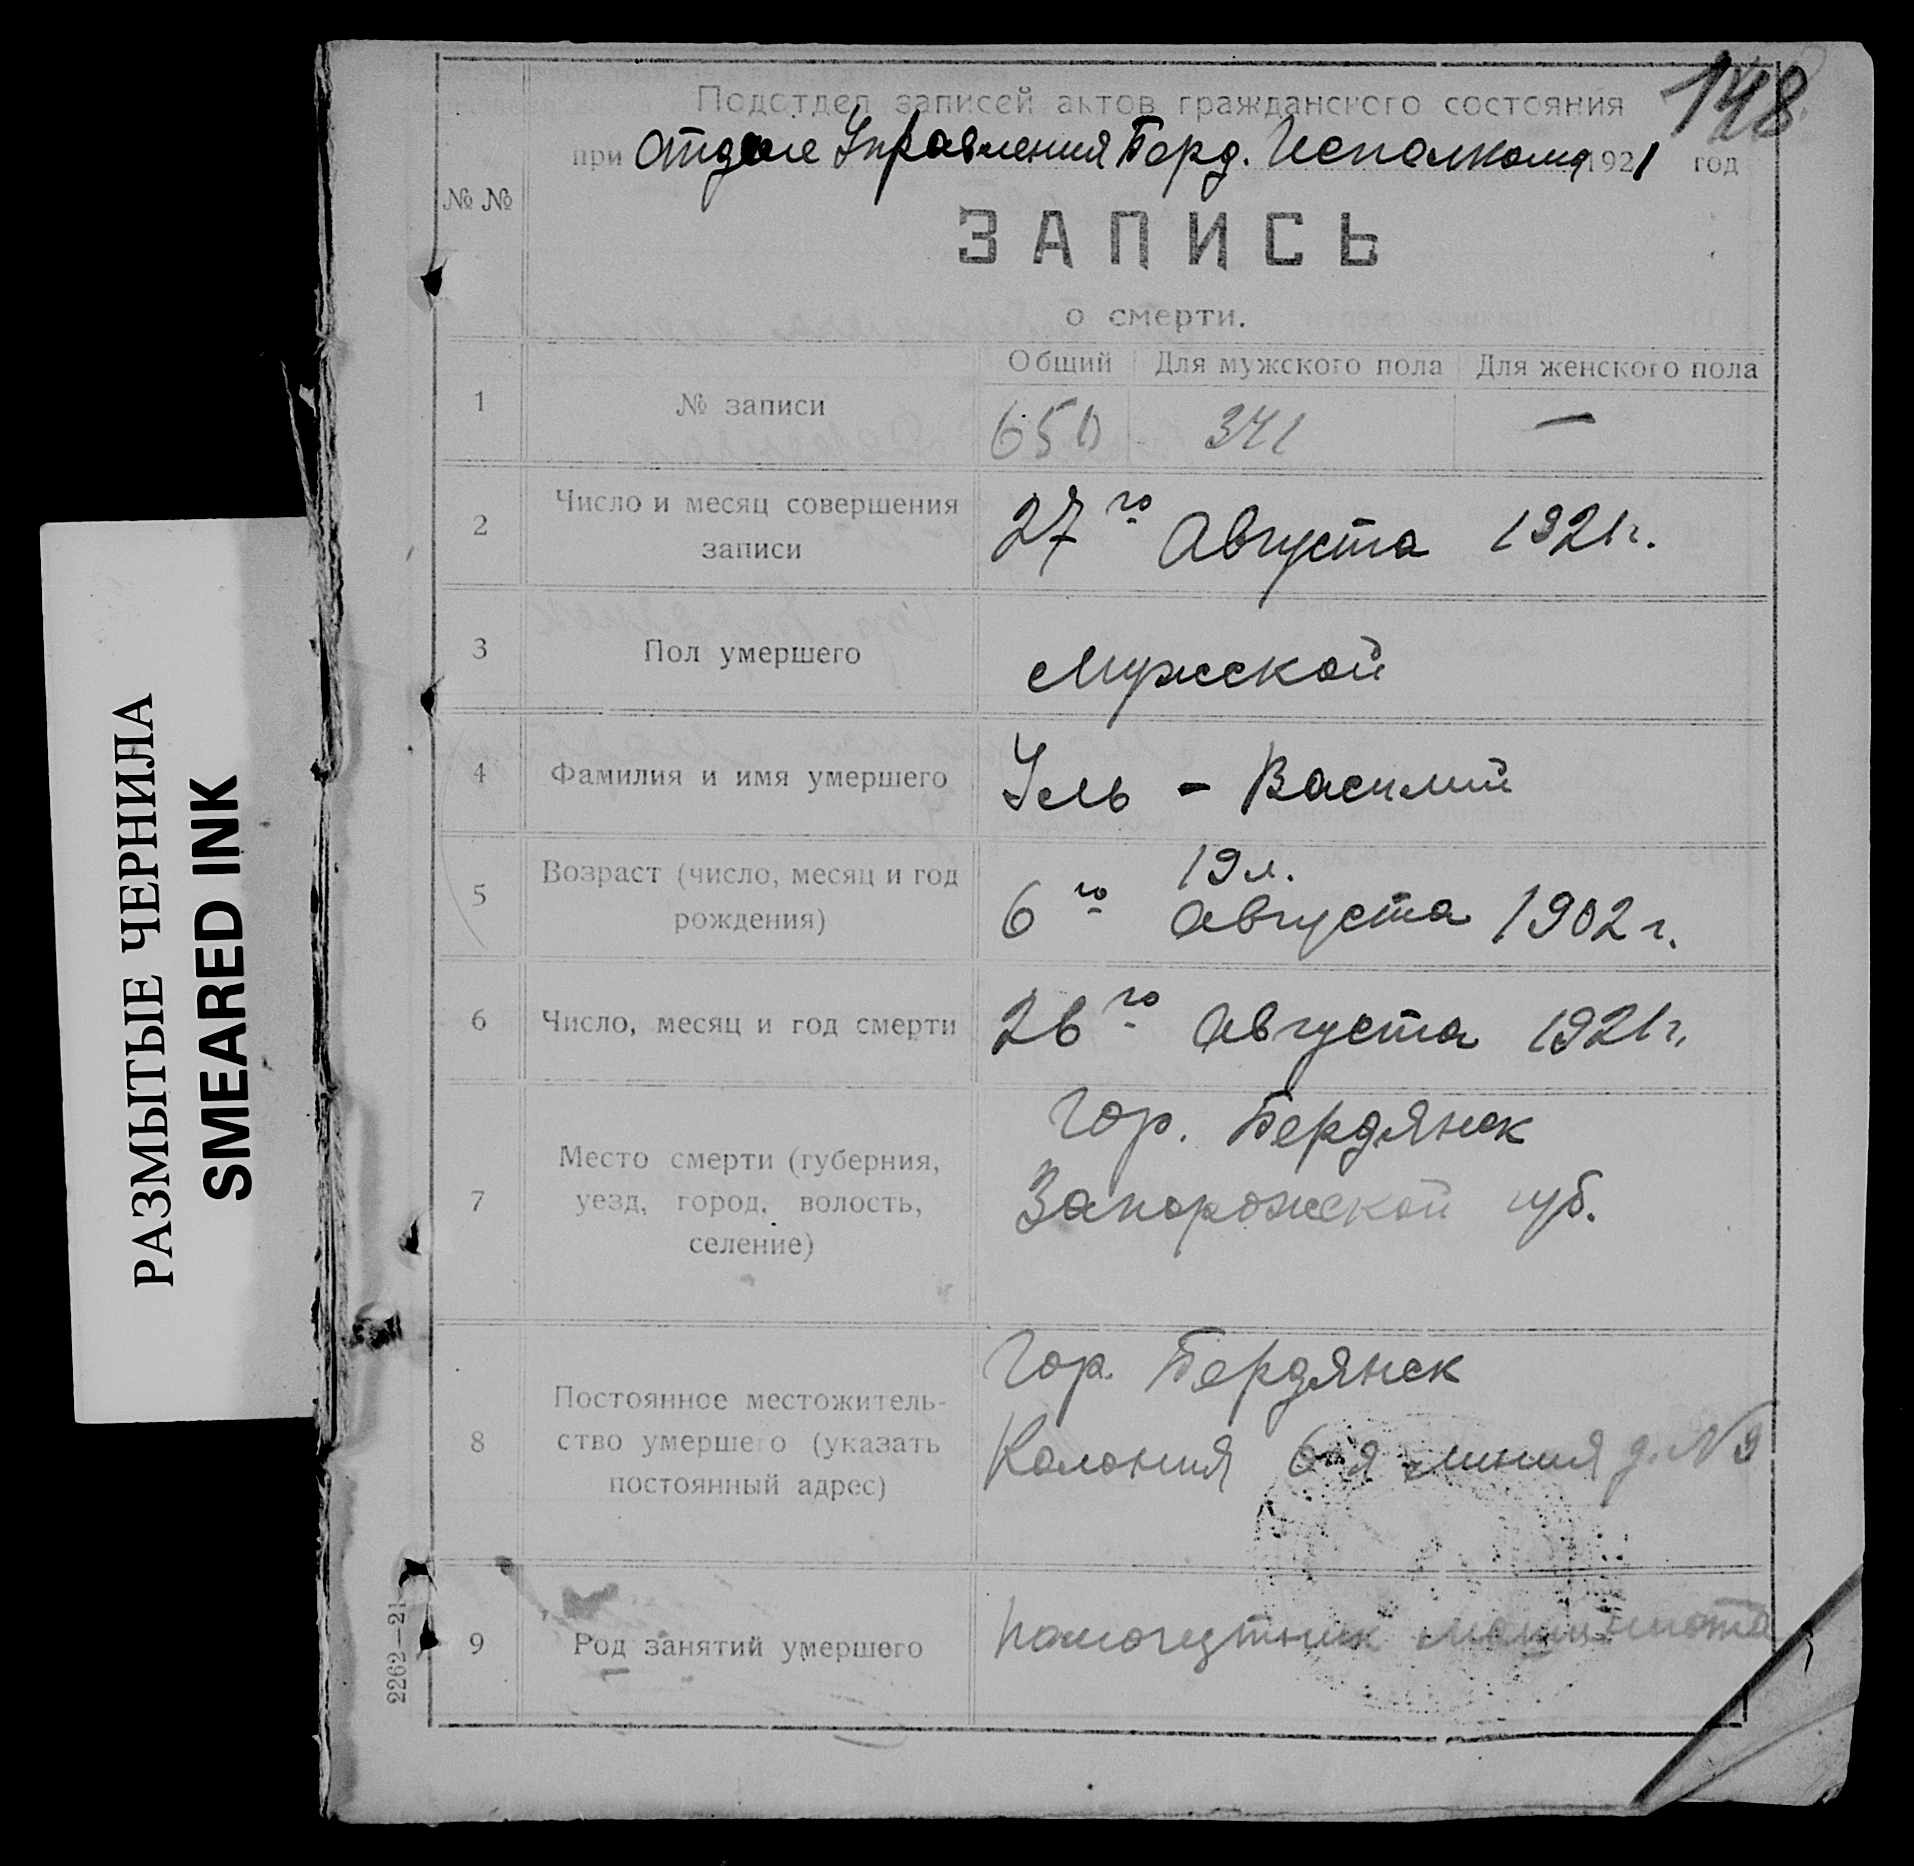 148
Подотдел записей актов гражданского состояния
при Отделе Управления Берд. Исполкома 1921 год
№ №
ЗАПИСЬ
о смерти.
Общий Для мужского пола Для женского пола
1 № записи 650 341 —
2 Число и месяц совершения
записи
27го Августа 1921г.
3 Пол умершего Мужской
4 Фамилия и имя умершего Усль - Василий
5 Возраст (число, месяц и год
рождения)
19 л.
6го Августа 1902 г.
6 Число, месяц и год смерти 26го Августа 1921г.
7 Место смерти (губерния,
уезд, город, волость,
селение)
Гор. Бердянск
Запорожской губ.
8 Постоянное местожитель-
ство умершего (указать
постоянный адрес)
Гор. Бердянск
Колония 6-я линия д. № 9
9 Род занятий умершего помощник машиниста
2262—21
РАЗМЫТЫЕ ЧЕРНИЛА
SMEARED INK